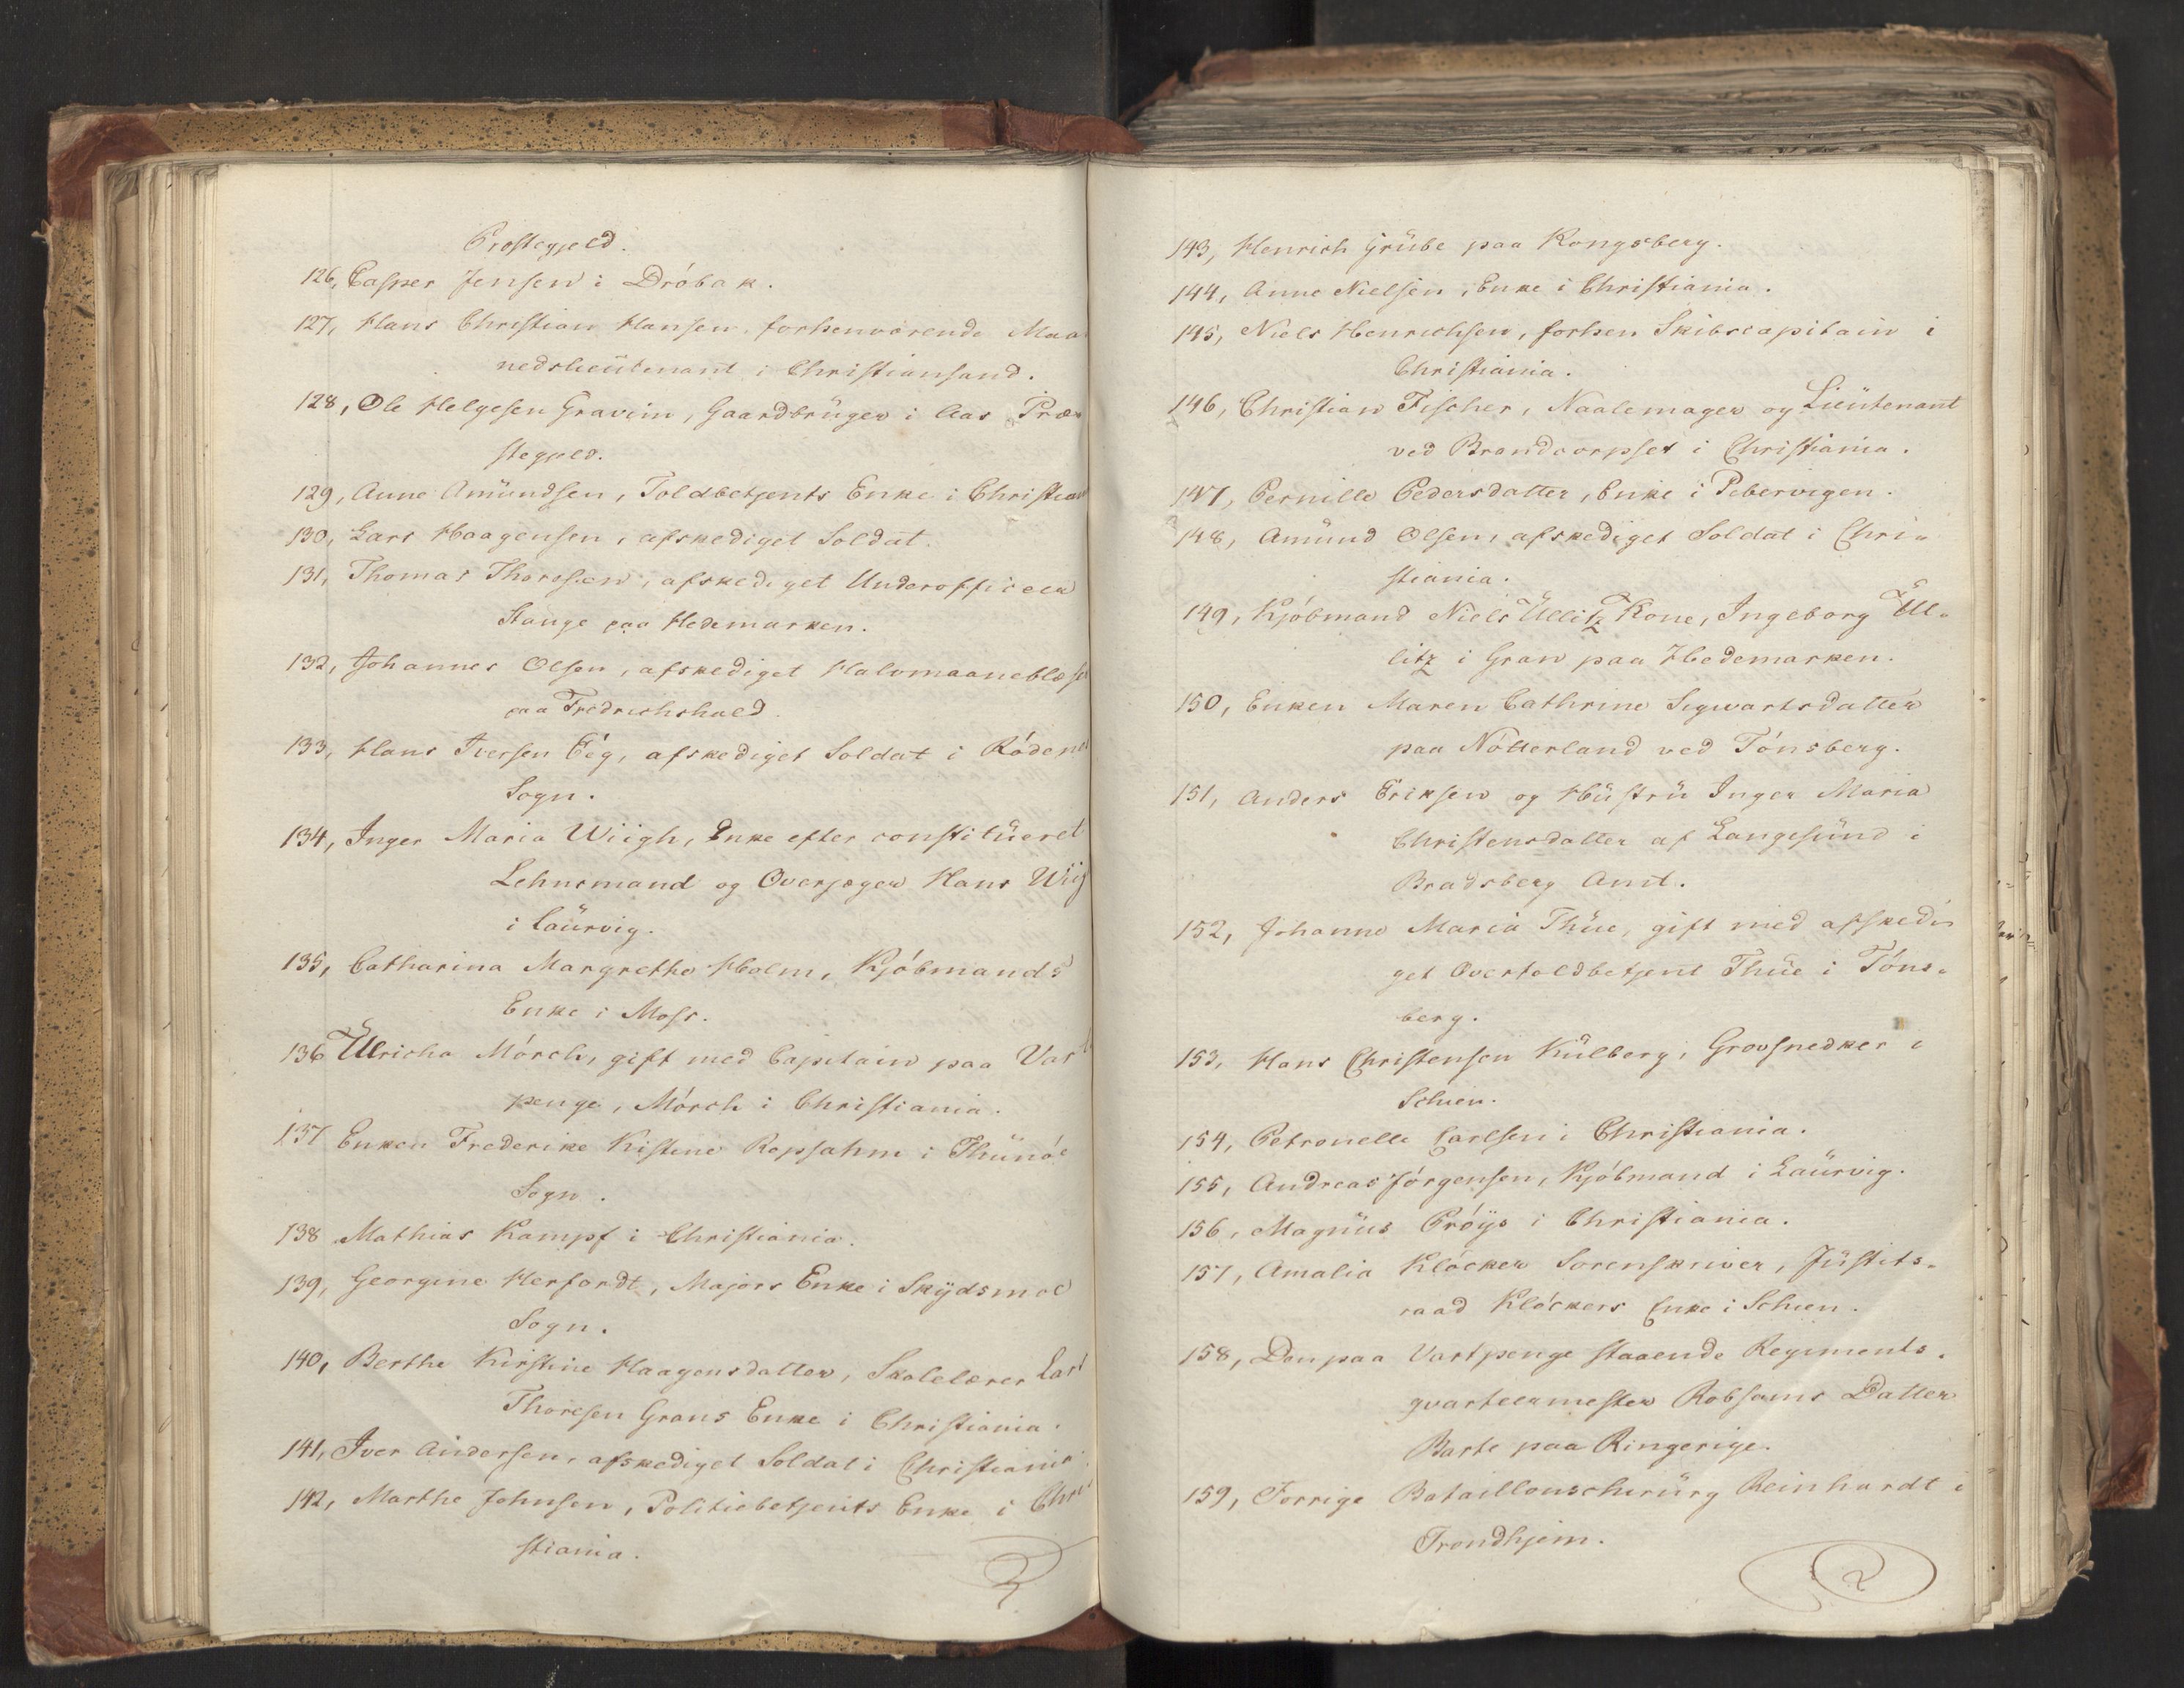 Præstegjeld.
126, Casper Jensen i Dröbak.
127, Hans Christian Hansen forhenværende Maa
nedslieutenant i Christiansand.
128, Ole Helgesen Gravim, Gaardbruger i Aas Præ
stegjeld.
129, Anne Amundsen, Toldbetjents Enke i Christian
130, Lars Haagensen, afskediget Soldat.
131, Thomas Thoresen, afskediget Underofficeer
Stange paa Hedemarken.
132, Johannes Olsen, afskediget Halvmaaneblæse
paa Fredrichshald.
133, Hans Iversen Eeg, afskediget Soldat i Rödene
Sogn.
134, Inger Maria Wiigh, Enke efter constitueret
Lehnsmand og Overjæger Hans Wiig
i Laurvig.
135, Catharina Margrethe Holm, Kjöbmands
Enke i Moss.
136 Ulricha Mörch, gift med Capitain paa Vart
penge, Mörch i Christiania.
137 Enken Frederike Kistine Repsahm i Thunöe
Sogn.
138 Mathias Kampf i Christiania.
139, Georgine Herfordt, Majors Enke i Skydsmoe
Sogn.
140, Berthe Kirstine Haagensdatter, Skolelærer Lars
Thoresen Grans Enke i Christiania.
141, Iver Andersen, afskediget Soldat i Christiania
142, Marthe Johnsen, Politiebetjents Enke i Chri
stiania.
143, Henrich Grube paa Kongsberg.
144, Anne Nielsen, Enke i Christiania.
145, Niels Henrichsen, forhen Skibscapitain i
Christiania.
146, Christian Fischer, Naalemager og Lieutenant
ved Brandcorpset i Christiania.
147, Pernille Pedersdatter, Enke i Pebervigen.
148, Amund Olsen, afskediget Soldat i Chri-
stiania.
149, Kjöbmand Niels Ullitz Kone, Ingeborg Ul-
litz i Gran paa Hedemarken.
150, Enken Maren Cathrine Sigwartsdatter
paa Nötterland ved Tönsberg.
151, Anders Eriksen og Hustru Inger Maria
Christensdatter af Langesund i
Bradsberg Amt.
152, Johanne Maria Thue, gift med afskedi
get Overtoldbetjent Thue i Töns-
berg.
153, Hans Christensen Kulberg, Grovsnedker i
Schien.
154, Petronelle Carlsen i Christiania.
155, Andreas Jörgensen, Kjöbmand i Laurvig.
156, Magnus Pröys i Christiania.
157, Amalia Klöcker Sorenskriver, Justits-
raad Klöckers Enke i Schien.
158, Den paa Vartpenge staaende Regiments-
qvarteermester Robsams Datter
Barte paa Ringerige.
159, Forrige Bataillonschirurg Reinhardt i
Trondhjem.